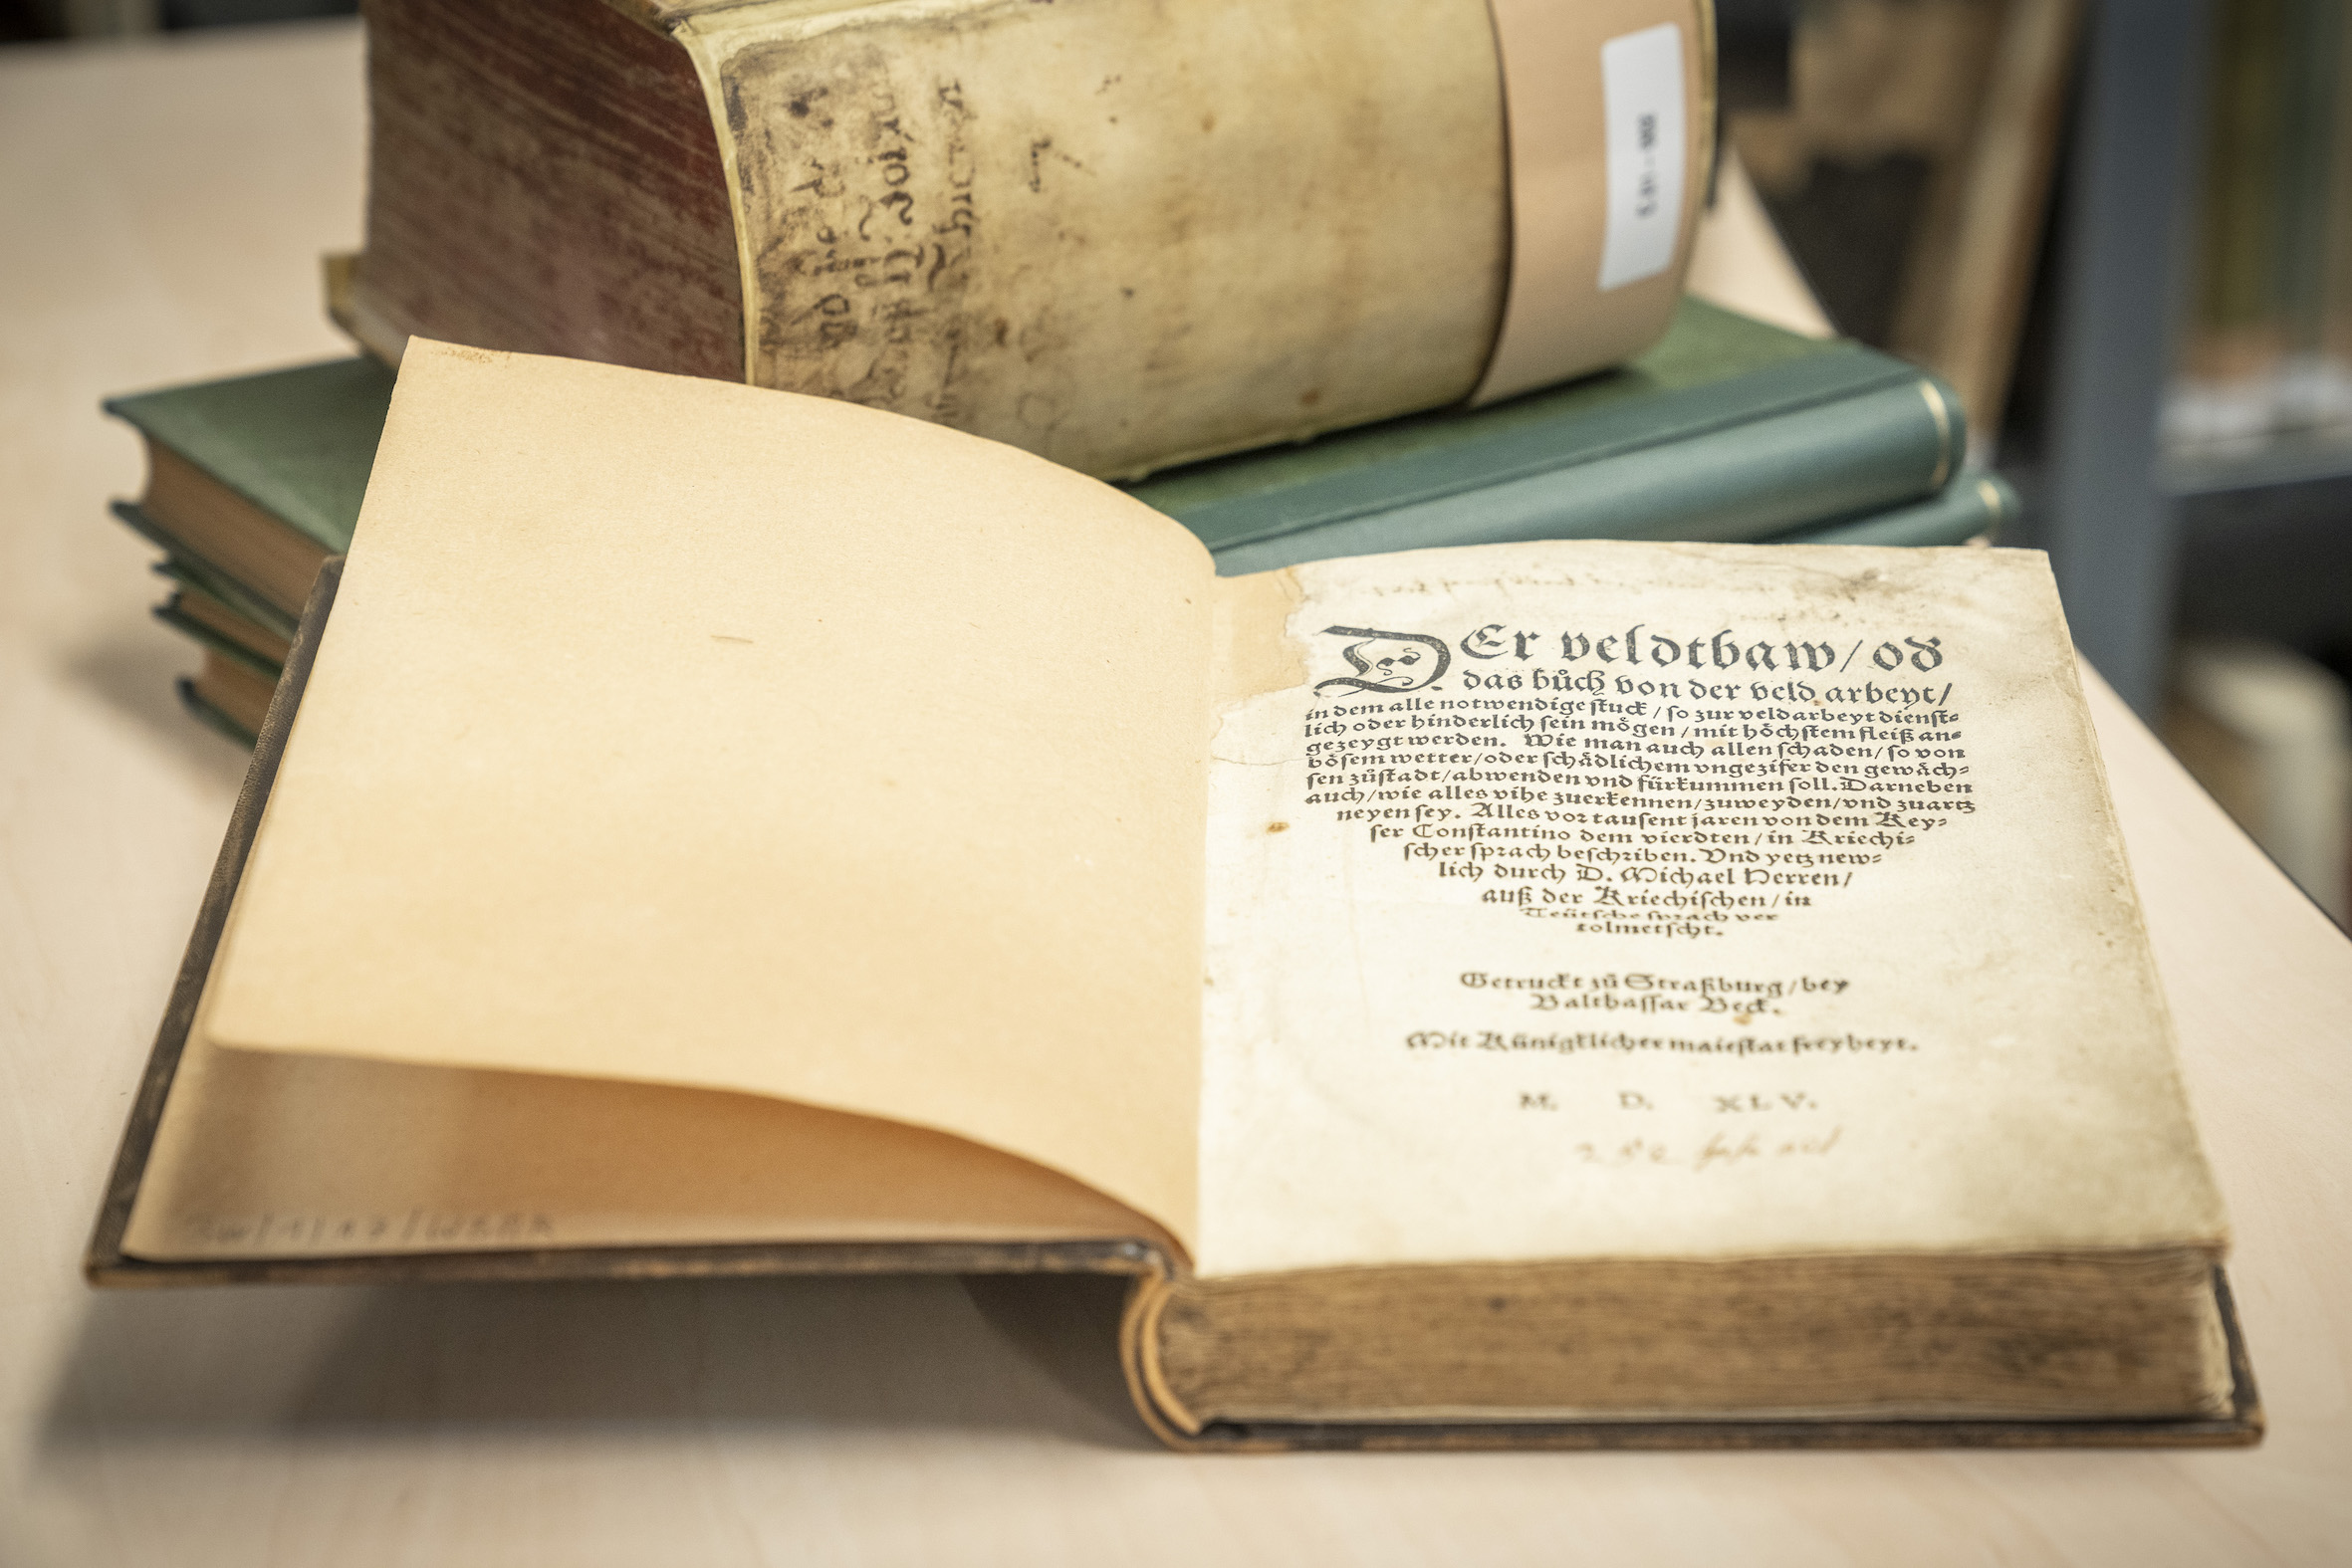 DEr veldtbaw/ od
das bůch von der veld arbeyt/
in dem alle notwendige stuck/ so zur veldarbeyt dienst⸗
lich oder hinderlich sein mögen/ mit höchstem fleiß an⸗
gezeygt werden. Wie man auch allen schaden/ so von
bösem wetter/ oder schädlichem vngezifer den gewäch⸗
sen zůstadt/ abwenden vnd fürkummen soll. Darneben
auch/ wie alles vihe zuerkennen/ zuweyden/ vnd zuartz
neyen sey. Alles vor tausent jaren von dem Key⸗
ser Constantino dem vierdten/ in Kriechi⸗
scher sprach beschriben. Vnd yetz new⸗
lich durch D. Michael Herren/
auß der Kriechischen/ in
Teütsche sprach ver
tolmetscht.
Getruckt zů Straßburg/ bey
Balthassar Beck.
Mit Künigklicher maiestat freyheyt.
M. D. XLV.